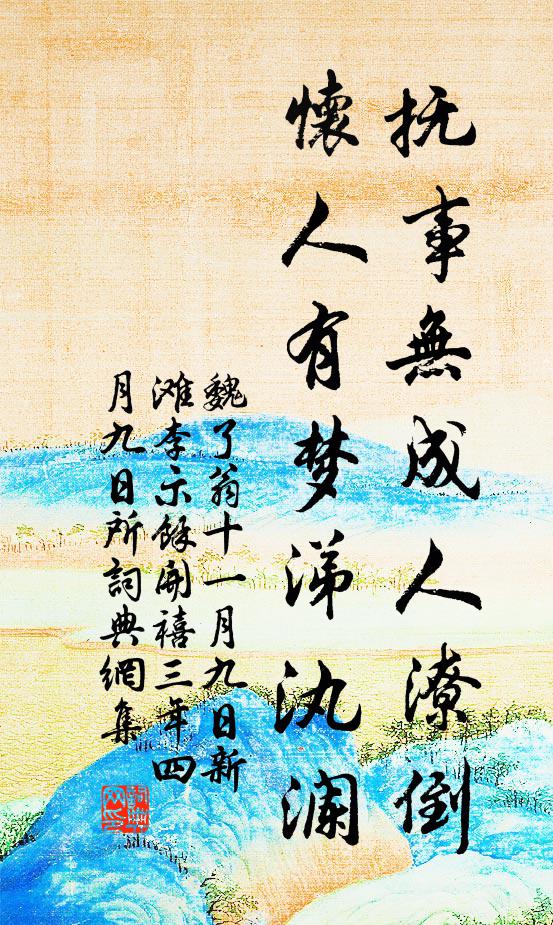 抚事無成人潦倒
懷人有梦涕汍澜
魏了翁十一月九日新
滩李示餘開禧三年四
月九日所詞典網集